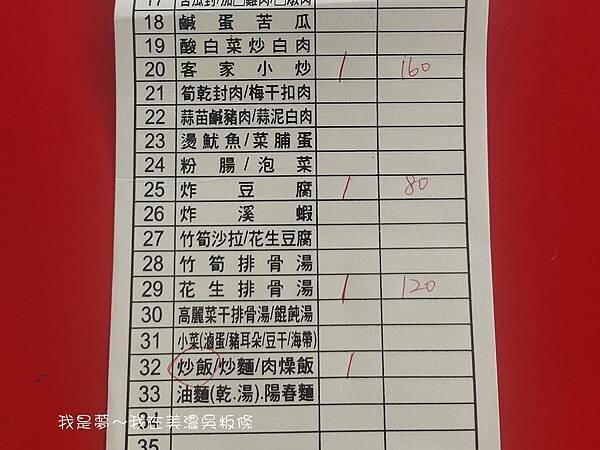 18 鹹蛋苦瓜
19 酸白菜炒白肉
20 客家小炒 1 160
21 筍乾封肉/梅干扣肉
22 蒜苗鹹豬肉/蒜泥白肉
23 燙魷魚/菜脯蛋
24 粉腸/泡菜
25 炸豆腐 1 80
26 炸溪蝦
27 竹筍沙拉/花生豆腐
28 竹筍排骨湯
29 花生排骨湯 1 120
30 高麗菜干排骨湯/餛飩湯
31 小菜(滷蛋/豬耳朵/豆干/海帶)
32 炒飯/炒麵/肉燥飯 1
33 油麵(乾.湯).陽春麵
34
35
我是夢~我在美濃吳粄條